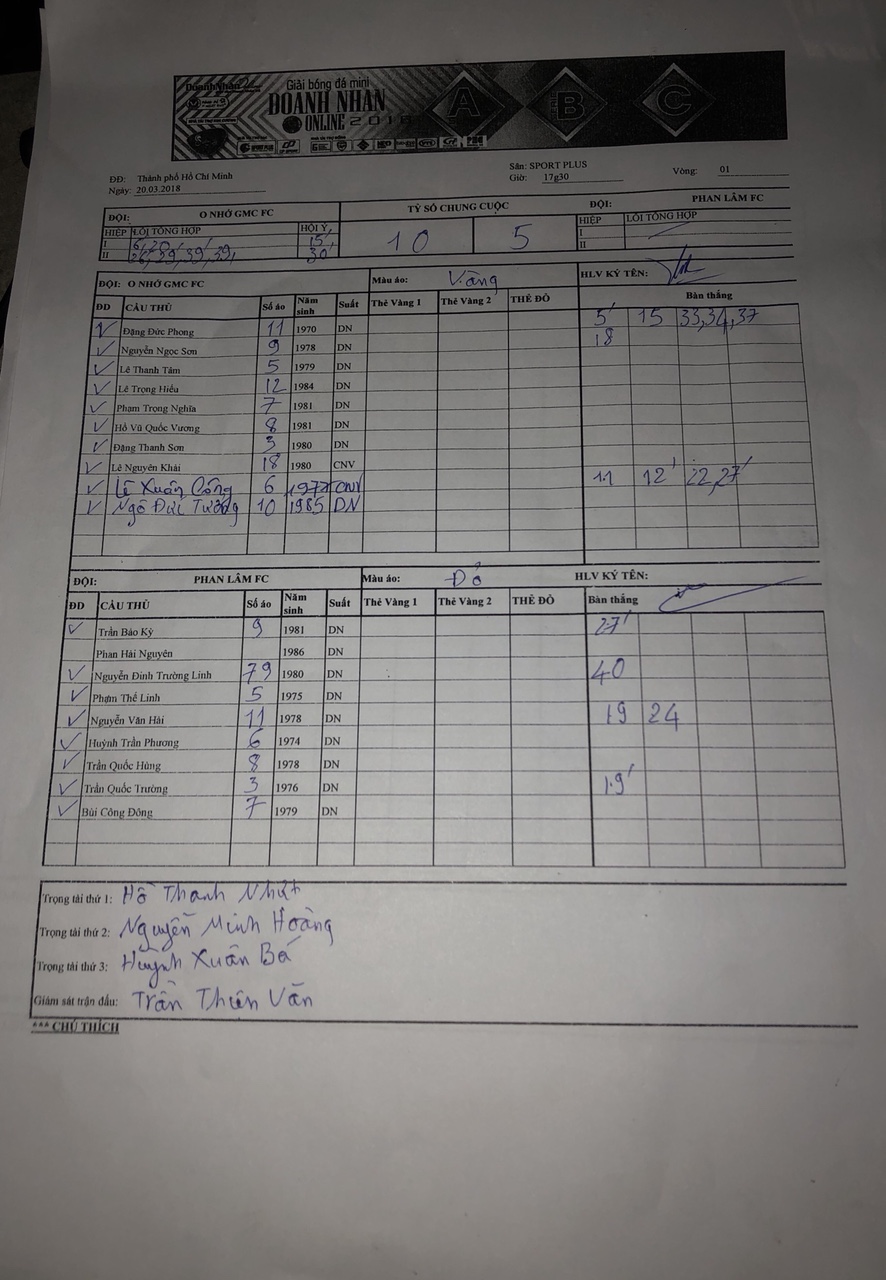 DoanhNhân
Giải bóng đá mini
DOANH NHÂN
ONLINE 2018
A B C
ĐĐ: Thành phố Hồ Chí Minh
Ngày: 20.03.2018
Sân: SPORT PLUS
Giờ: 17g30
Vòng: 01
ĐỘI: O NHỚ GMC FC
TỶ SỐ CHUNG CUỘC
ĐỘI: PHAN LÂM FC
HIỆP LỖI TỔNG HỢP HỘI Ý
I 6, 20, 15'
II 26, 29, 39, 39, 30'
10 5
HIỆP LỖI TỔNG HỢP
I
II
ĐỘI: O NHỚ GMC FC Màu áo: Vàng HLV KÝ TÊN:
ĐD CẦU THỦ Số áo Năm sinh Suất Thẻ Vàng 1 Thẻ Vàng 2 THẺ ĐỎ Bàn thắng
Đặng Đức Phong 11 1970 DN 5' 15 33,34,37
Nguyễn Ngọc Sơn 9 1978 DN 18
Lê Thanh Tâm 5 1979 DN
Lê Trọng Hiếu 12 1984 DN
Phạm Trọng Nghĩa 7 1981 DN
Hồ Vũ Quốc Vương 8 1981 DN
Đặng Thanh Sơn 3 1980 DN
Lê Nguyên Khải 18 1980 CNV
Lê Xuân Công 6 CNV 11 12' 22,27'
Ngô Đức Tường 10 1985 DN
ĐỘI: PHAN LÂM FC Màu áo: Đỏ HLV KÝ TÊN:
ĐD CẦU THỦ Số áo Năm sinh Suất Thẻ Vàng 1 Thẻ Vàng 2 THẺ ĐỎ Bàn thắng
Trần Bảo Kỳ 9 1981 DN 27'
Phan Hải Nguyên 1986 DN
Nguyễn Đình Trường Linh 79 1980 DN 40
Phạm Thế Linh 5 1975 DN
Nguyễn Văn Hải 11 1978 DN 19 24
Huỳnh Trần Phương 6 1974 DN
Trần Quốc Hùng 8 1978 DN
Trần Quốc Trường 3 1976 DN 19'
Bùi Công Đông 7 1979 DN
Trọng tài thứ 1: Hồ Thanh Nhựt
Trọng tài thứ 2: Nguyễn Minh Hoàng
Trọng tài thứ 3: Huỳnh Xuân Bá
Giám sát trận đấu: Trần Thiện Văn
*** CHÚ THÍCH